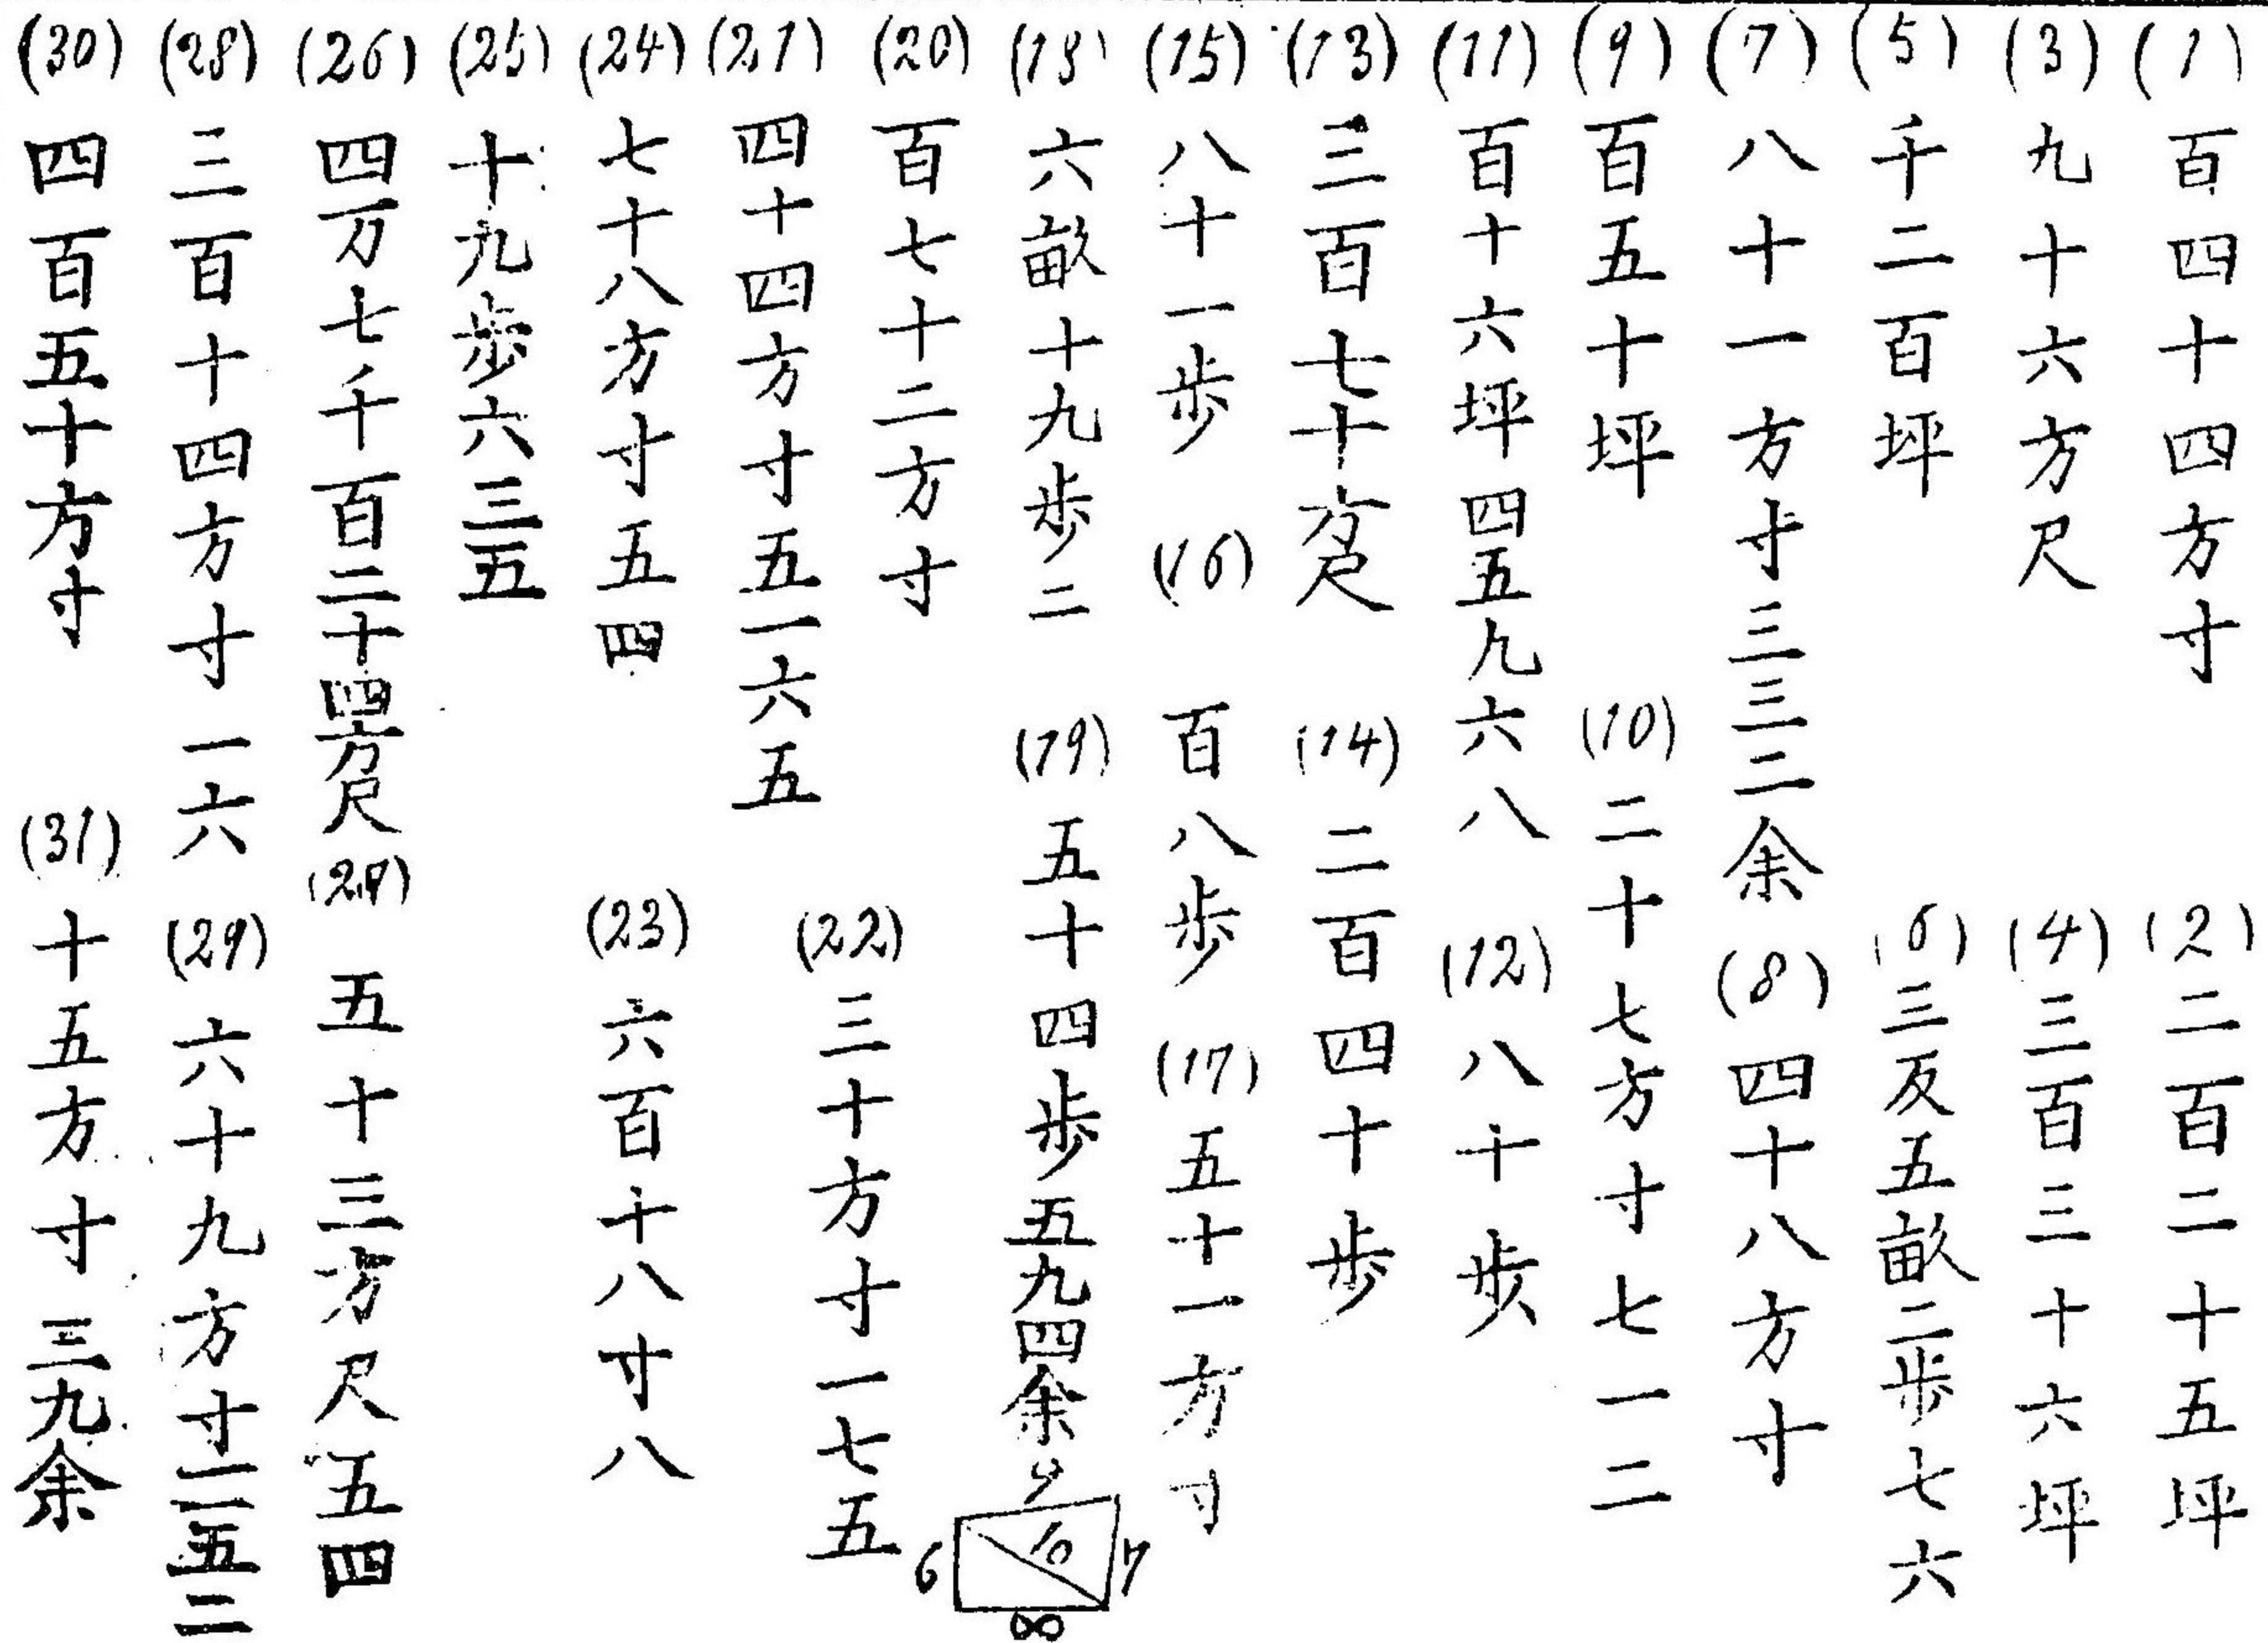 (1) 百四十四方寸 (2) 二百二十五坪
(3) 九十六方尺 (4) 三百三十六坪
(5) 千二百坪 (6) 三反五畝二歩七六
(7) 八十一方寸三三二余 (8) 四十八方寸
(9) 百五十坪 (10) 二十七方寸七一二
(11) 百十六坪四五九六八 (12) 八十歩
(13) 三百七十六方尺 (14) 二百四十歩
(15) 八十一歩 (16) 百八歩 (17) 五十一方寸
(18) 六畝十九歩二 (19) 五十四歩五九四余
9 10 6 7 8
(20) 百七十二方寸
(21) 四十四方寸五一六五 (22) 三十方寸一七五
(24) 七十八方寸五四 (23) 六百十八寸八
(25) 十九歩六三五
(26) 四万七千百二十四方尺 (27) 五十三方尺五四
(28) 三百十四方寸一六 (29) 六十九方寸一一五二
(30) 四百五十方寸 (31) 十五方寸三九余